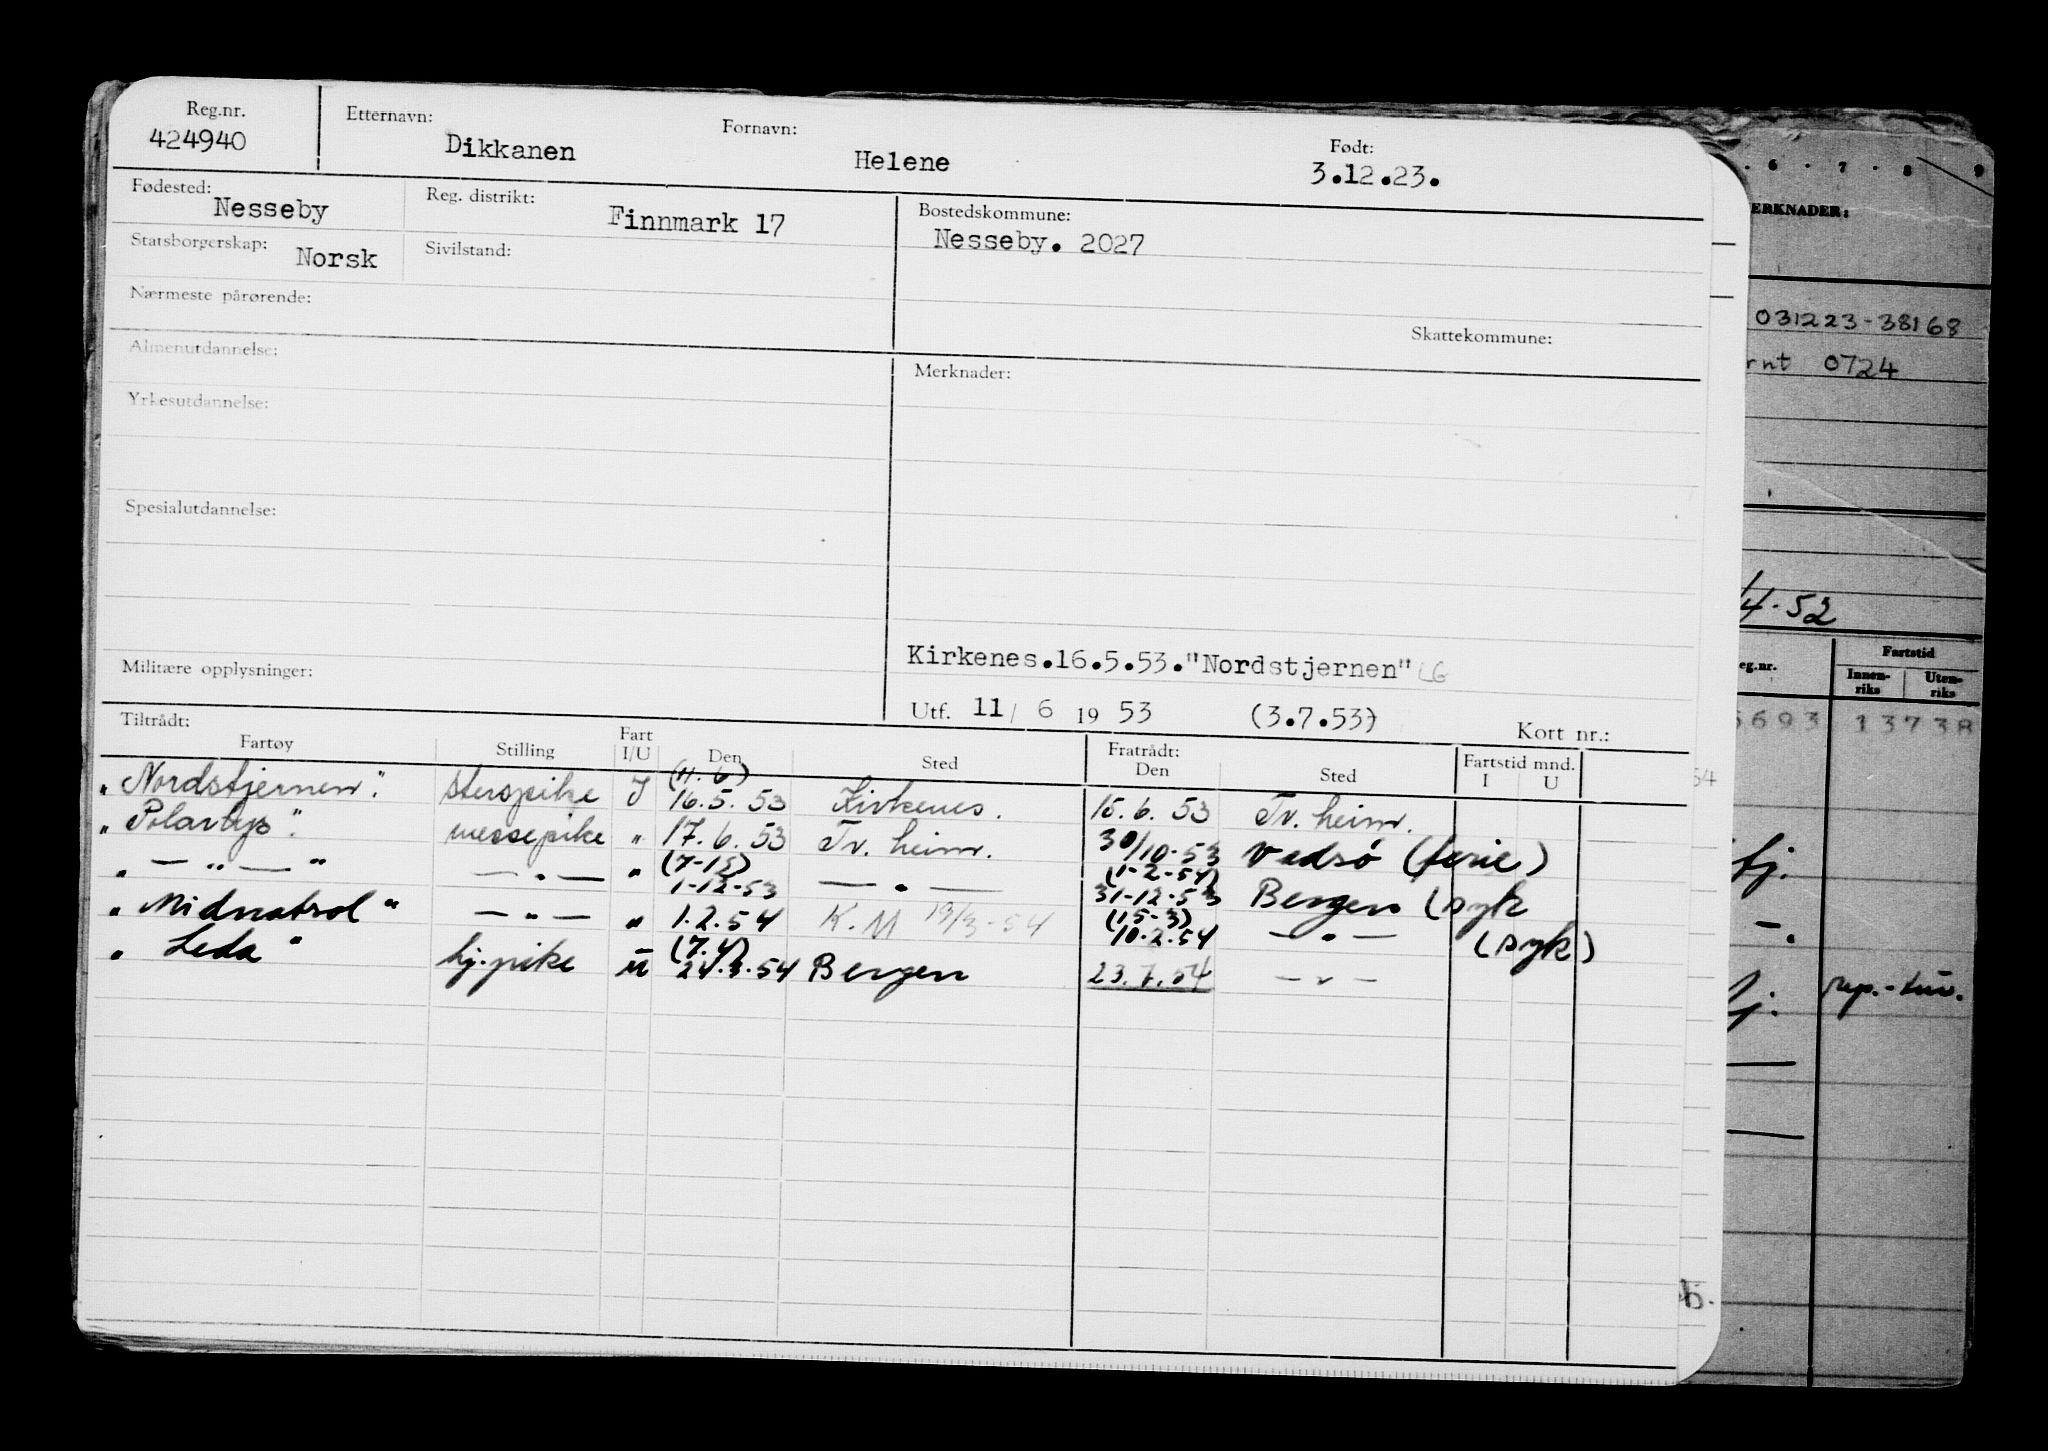 Reg.nr. Etternavn: Fornavn: Født:
424940 Dikkanen Helene 3.12.23.
Fødested: Nesseby Reg. distrikt: Finnmark 17 Bostedskommune:
Nesseby. 2027
Statsborgerskap: Norsk Sivilstand:
Nærmeste pårørende:
Skattekommune:
Almenutdannelse: Merknader:
Yrkesutdannelse:
Spesialutdannelse:
Kirkenes.16.5.53."Nordstjernen" LG
Militære opplysninger:
Utf. 11/ 6 19 53 (3.7.53) Kort nr.:
Tiltrådt: Fratrådt:
Fartøy Stilling Fart I/U Den Sted Den Sted Fartstid mnd. I U
(11.6)
"Nordstjernen". I 16.5.53 Kirkenes. 15.6.53 Tr.heim.
"Polarlys". messepike " 17.6.53 Tr.heim. 30/10-53 Vadsø (ferie)
(7-12) (1-2-54)
" — " — " — " — " 1-12-53 — " — 31-12-53 Bergen (syk
(15-3)
" Midnatsol " — " — " 1.2.54 K.M 19/3-54 10.2.54 — " — (syk)
(7.4)
" Leda " hj.pike U 24.3.54 Bergen 23.7.54 — " —
6 . 7 . 8 9
ERKNADER:
031223-38168
rnt 0724
4-52
eg.nr. Fartstid
Innen-riks Uten-riks
6693 13738
54
fj.
—.
fj. rep.-tur.